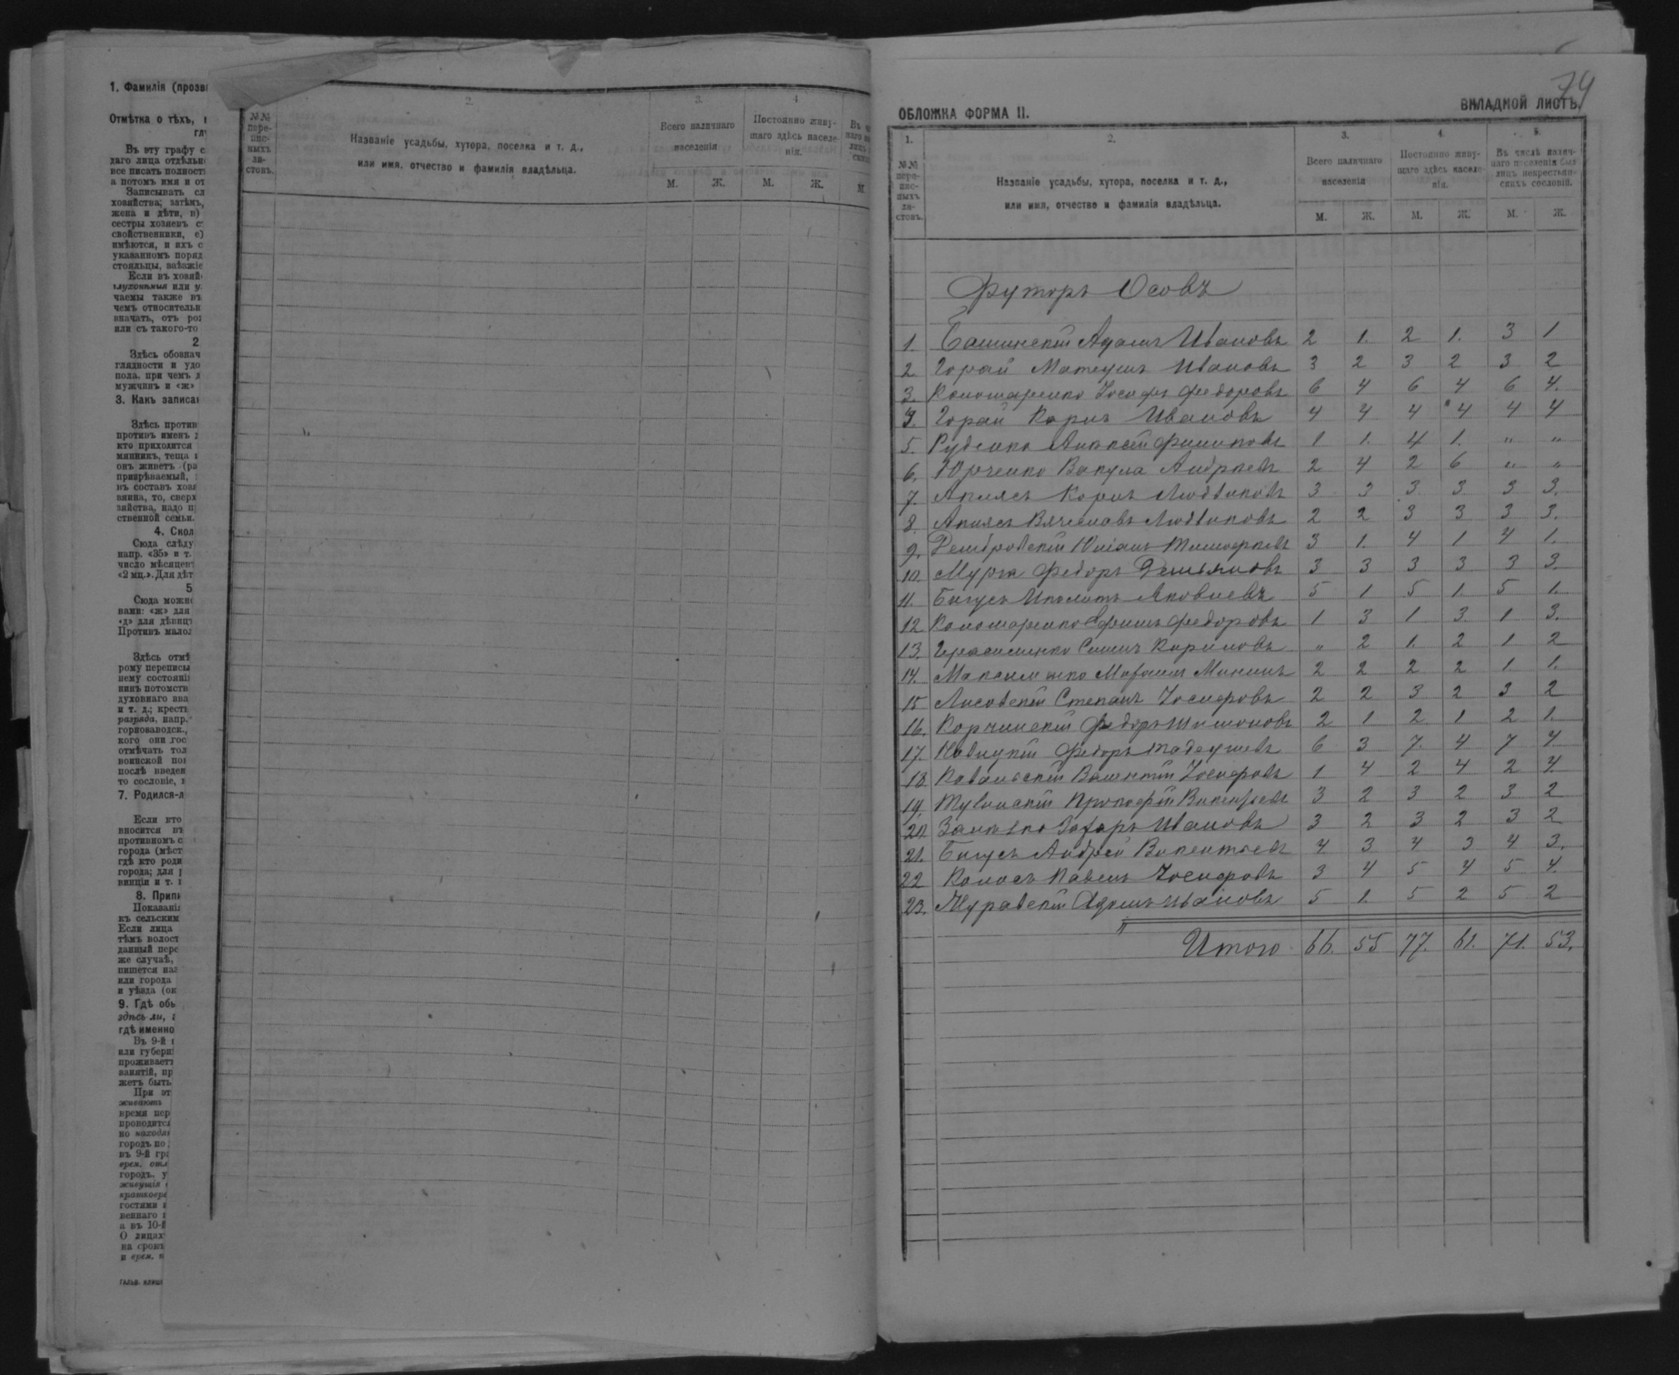 1. Фамилія (прозв
Отмѣтка о тѣхъ,
Въ эту графу
даго лица отдѣльн
все писать полност
а потомъ имя и от
Записывать сл
хозяйства; затѣмъ,
жена и дѣти, в)
сестры хозяевъ
свойственники, е)
имѣются, и ихъ с
указанномъ поряд
стояльцы, заѣзжіе
Если въ хозяй
глухонѣмыя или
чаемы также въ
чемъ относительн
значать, отъ рож
или съ такого-то
2
Здѣсь обознач
глядности и удо
пола. при чемъ
мужчинъ и «ж»
3. Какъ записан
Здѣсь против
противъ именъ
кто приходится
мянникъ, теща
онъ живетъ (ра
призрѣваемый,
въ составъ хозя
вянна, то, сверх
зяйства, надо
ственной семьи.
4. Скол
Сюда слѣду
напр. «35» и т.
число мѣсяцевъ
«2 мц.». Для дѣт
5
Сюда можн
нами: «ж» для
«д» для дѣвиц
Противъ малол
Здѣсь отмѣ
рому переписы
нему состоянію
нинъ потомств
духовнаго зва
и т. д.; крест
разряда, напр.
горнозаводск.,
кого они гос
отмѣчать тол
воинской пов
послѣ введен
то сословіе,
7. Родился-л
Если кто
вносится въ
противномъ с
города (мѣст
гдѣ кто роди
города; для
винціи и т.
8. Припи
Показанія
къ сельским
Если лица
тѣмъ волост
данный пере
же случаѣ,
пишется наз
или города
и уѣзда (ок
9. Гдѣ обы
здѣсь ли,
гдѣ именно
Въ 9-й
или губерн
проживаетъ
занятій, пр
жетъ быть
При эт
живаютъ
время пер
проводится
но находя
городъ по
въ 9-й гра
врем. отл
городъ, у
живущія
кратковре
гостями
веннаго
а въ 10-й
О лицах
на срочн
и врем. п
№№ пере-
пис-
ныхъ
ли-
стовъ.
2.
Названіе усадьбы, хутора, поселка и т. д.,
или имя, отчество и фамилія владѣльца.
3.
Всего наличнаго
населенія
М. Ж.
4
Постоянно живу-
щаго здѣсь населе-
нія.
М. Ж.
М.
74
ОБЛОЖКА ФОРМА II. ВКЛАДНОЙ ЛИСТЪ
1. 2. 3. 4. 5.
№№
пере-
пис-
ныхъ
ли-
стовъ.
Названіе усадьбы, хутора, поселка и т. д.,
или имя, отчество и фамилія владѣльца.
Всего наличнаго
населенія
Постоянно живу-
щаго здѣсь населе-
нія.
Въ числѣ налич-
наго населенія был
лицъ некрестьян-
скихъ сословій.
М. Ж. М. Ж. М. Ж.
Футоръ Осовъ
1. Башинскій Адамъ Ивановъ 2 1. 2 1. 3 1
2 Горай Матеушъ Ивановъ 3 2 3 2 3 2
3. Кономаренко Іосифъ Федоровъ 6 4 6 4 6 4.
4. Горай Карпъ Ивановъ 4 4 4 4 4 4
5. Руденко Алексѣй Филиповъ 1 1. 4 1. „ „
6. Юрченко Вакула Андреевъ 2 4 2 6 „ „
7. Апилсъ Карпъ Людвиковъ 3 3 3. 3 3 3.
8. Апилсъ Вячеславъ Людвиковъ 2 2 3 3 3 3.
9. Дембровскій Юліанъ Тимофѣевъ 3 1. 4 1 4 1.
10. Мурга Федоръ Демьяновъ 3 3 3 3 3 3.
11. Бигусъ Иполитъ Яковлевъ 5 1 5 1. 5 1.
12 Кономаренко Ефимъ Федоровъ 1 3 1 3. 1 3.
13. Герасименко Карповъ „ 2 1. 2 1 2
14. Максименко 2 2 2 2 1 1.
15 Лисовскій Степанъ Іосифовъ 2 2 3 2 3 2
16. Корчинскій Федоръ Шимоновъ 2 1 2 1 2 1.
17. Новицкій Федоръ Тадеушевъ 6 3 7. 4 7 4.
18. Ковальскій Валентій Іосифовъ 1 4 2 4 2 4.
19. Тувинскій Прокофій Викентьевъ 3 2 3 2 3 2
20. Захаръ Ивановъ 3 2 3 2 3 2
21. Бигусъ Андрей Викентьевъ 4 3 4 3 4 3.
22 Колосъ Павелъ Іосифовъ 3 4 5 4 5 4.
23. Муравскій Адамъ Ивановъ 5 1. 5 2 5 2
Итого 66. 55 77. 61. 71. 53.